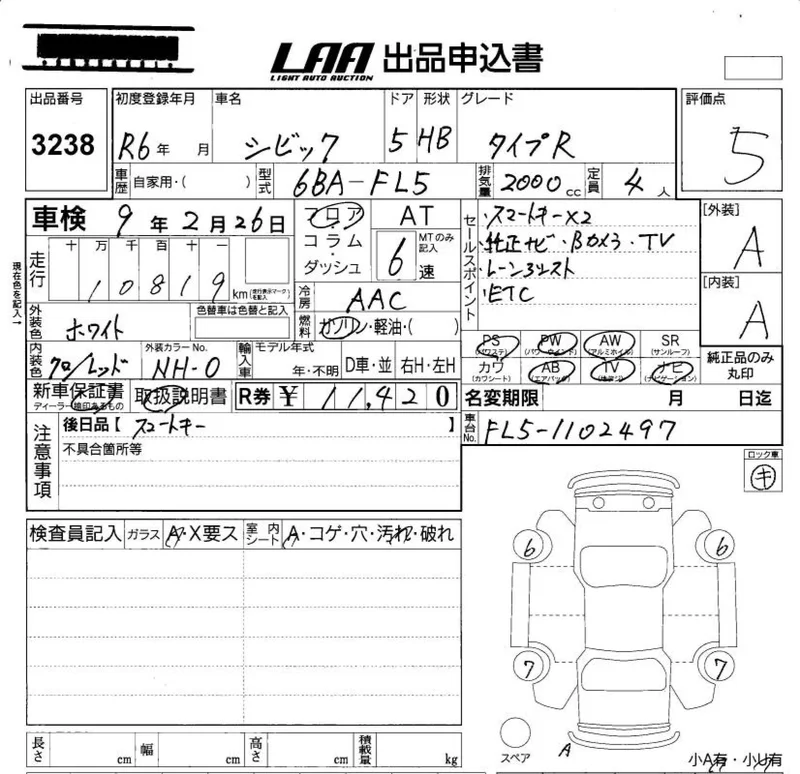 LAA 出品申込書
LIGHT AUTO AUCTION
出品番号 初度登録年月 車名 ドア 形状 グレード 評価点
3238 R6年 月 シビック 5 HB タイプR 5
車歴 自家用・( ) 型式 6BA-FL5 排気量 2000cc 定員 4人
車検 9年2月26日 フロア・コラム・ダッシュ AT MTのみ記入 6速
セールスポイント
・スマートキー×2
・純正ナビ・Bカメラ・TV
・レーンアシスト
・ETC
[外装] A
[内装] A
現在色を記入→
走行 十 万 千 百 十 一
10819 km (走行表示マークを記入)
冷房 AAC
外装色 ホワイト 色替車は色替と記入 燃料 ガソリン・軽油・( )
内装色 クロ/レッド 外装カラーNo. NH-0 輸入車 モデル年式 年・不明 D車・並 右H・左H
PS (パワステ) PW (パワーウインド) AW (アルミホイル) SR (サンルーフ)
カワ (カワシート) AB (エアバック) TV (地デジ) ナビ (ナビゲーション)
純正品のみ丸印
新車保証書 ディーラー検印あるもの 取扱説明書 R券 ¥ 11,420
名変期限 月 日迄
車台No. FL5-1102497
注意事項
後日品【 スマートキー 】
不具合箇所等
ロック車
キ
検査員記入 ガラス A・X要ス 室内シート A・コゲ・穴・汚れ・破れ
6 6
7 7
スペア A
小A有・小U有
長さ cm 幅 cm 高さ cm 積載量 kg